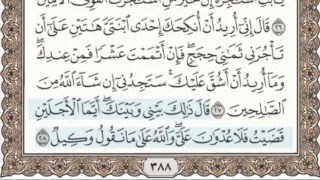 يَٰٓأَبَتِ ٱسْتَـْٔجِرْهُ إِنَّ خَيْرَ مَنِ ٱسْتَـْٔجَرْتَ ٱلْقَوِىُّ ٱلْأَمِينُ
٢٦ قَالَ إِنِّىٓ أُرِيدُ أَنْ أُنكِحَكَ إِحْدَى ٱبْنَتَىَّ هَٰتَيْنِ عَلَىٰٓ أَن
تَأْجُرَنِى ثَمَٰنِىَ حِجَجٍ فَإِنْ أَتْمَمْتَ عَشْرًا فَمِنْ عِندِكَ
وَمَآ أُرِيدُ أَنْ أَشُقَّ عَلَيْكَ سَتَجِدُنِىٓ إِن شَآءَ ٱللَّهُ مِنَ
ٱلصَّٰلِحِينَ ٢٧ قَالَ ذَٰلِكَ بَيْنِى وَبَيْنَكَ أَيَّمَا ٱلْأَجَلَيْنِ
قَضَيْتُ فَلَا عُدْوَٰنَ عَلَىَّ وَٱللَّهُ عَلَىٰ مَا نَقُولُ وَكِيلٌ ٢٨
٣٨٨